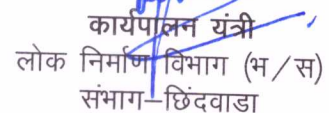 कार्यपालन यंत्री
लोक निर्माण विभाग (भ/स)
संभाग–छिंदवाडा